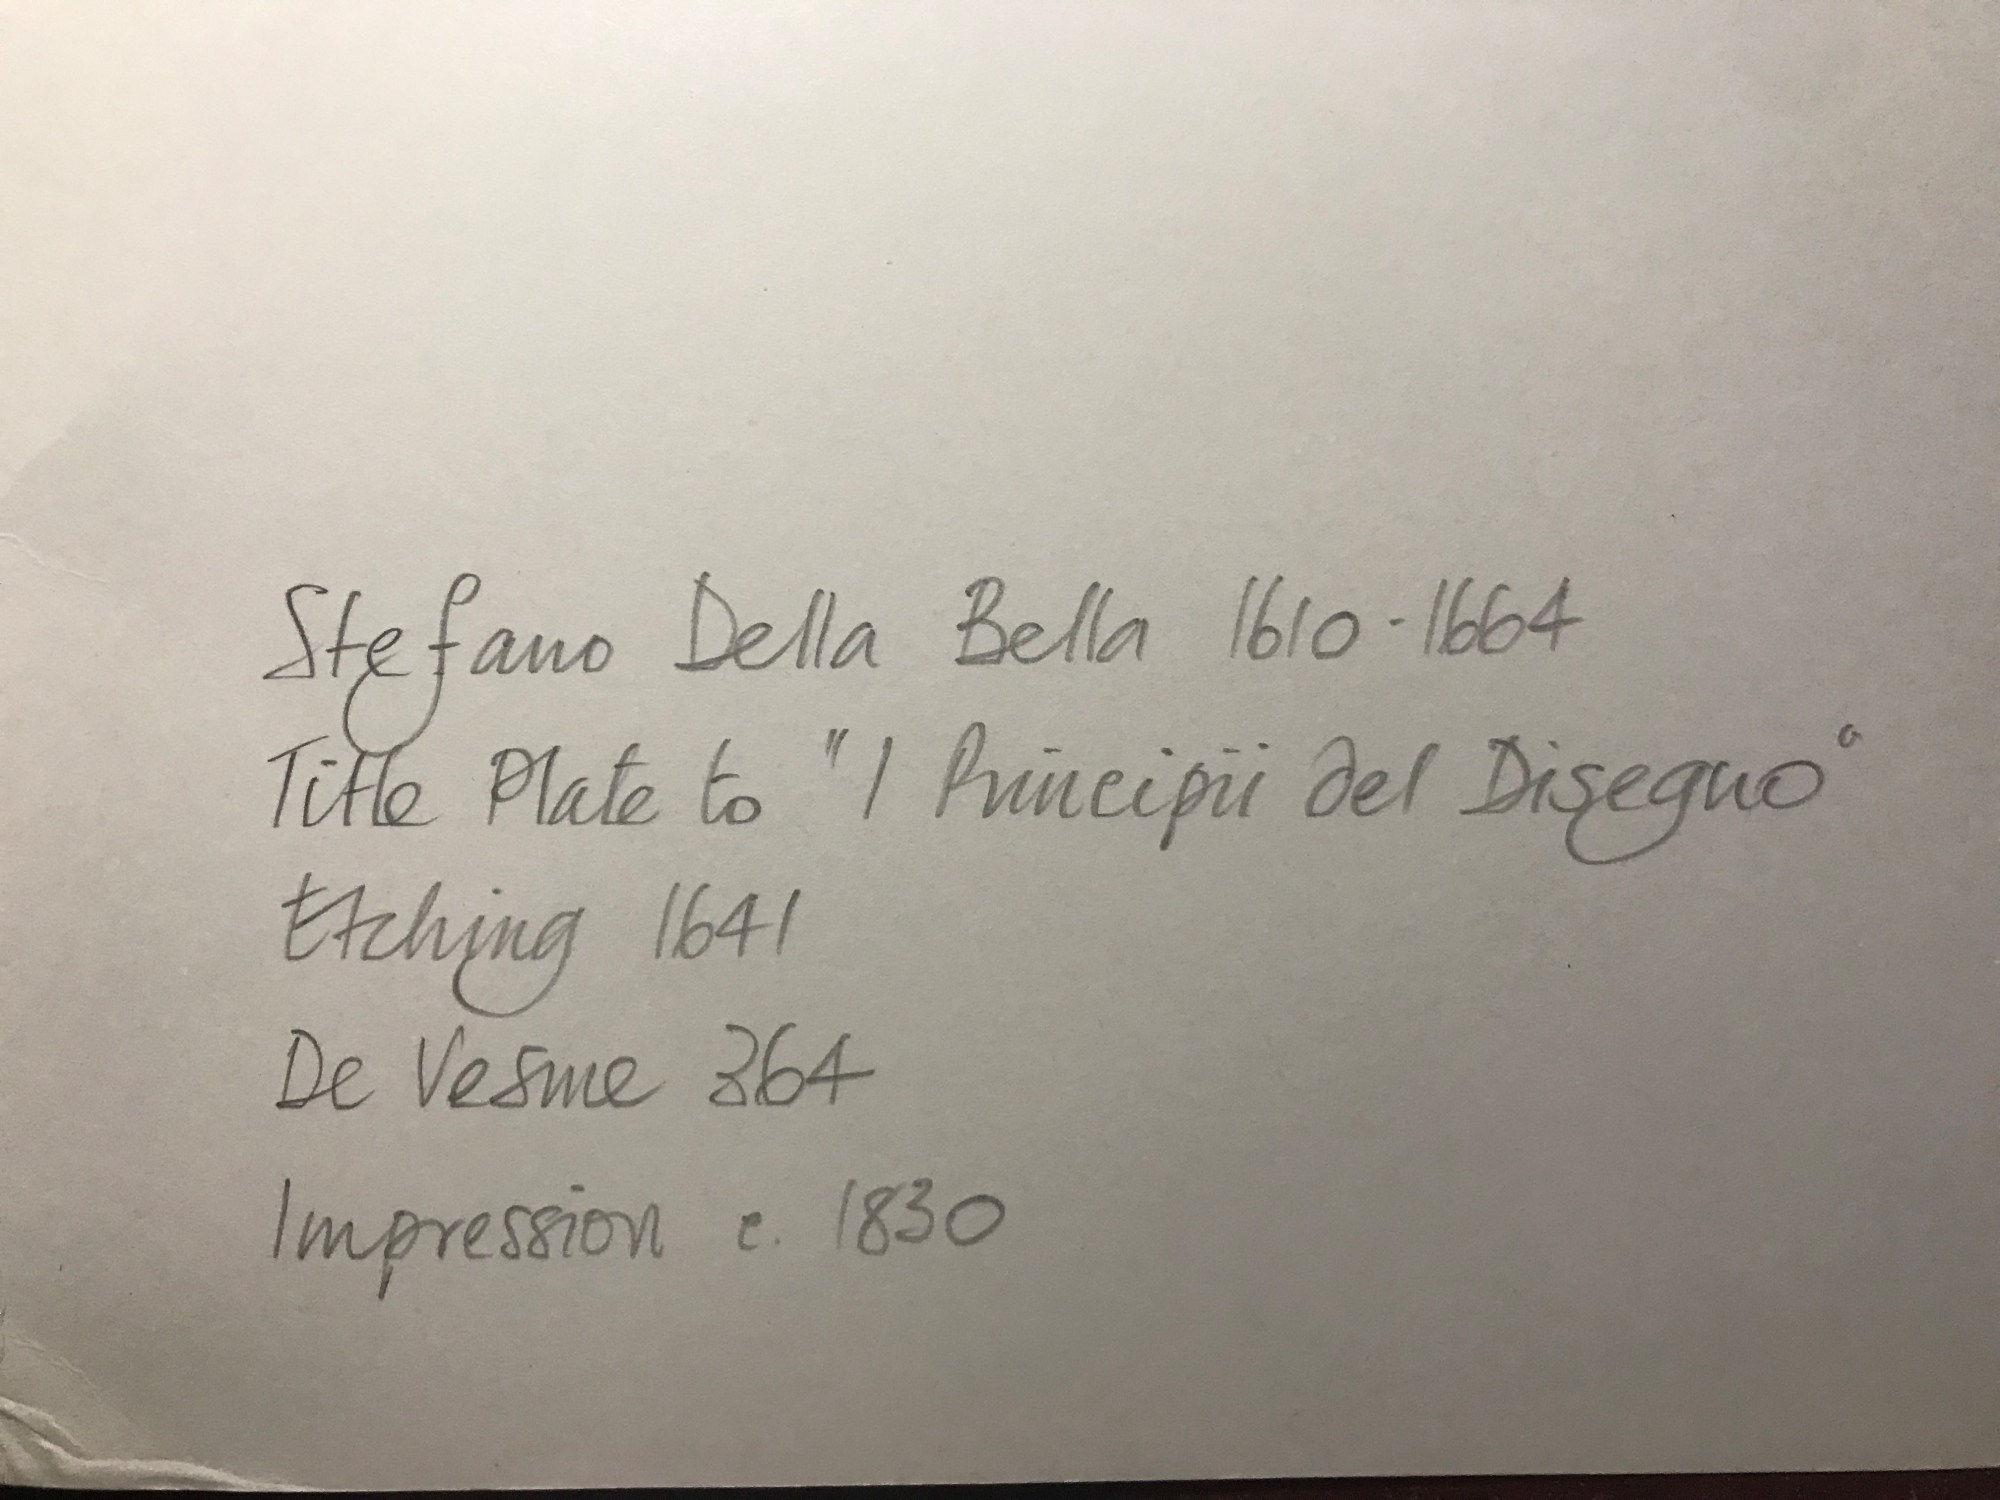 Stefano Della Bella 1610-1664
Title Plate to "I Principii del Disegno"
Etching 1641
De Vesme 364
Impression c. 1830